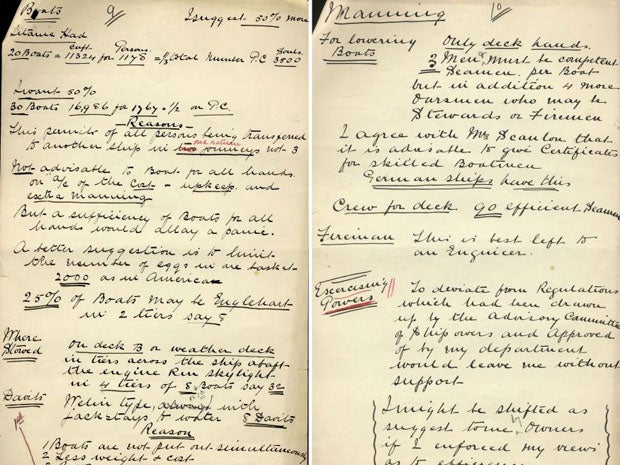 Boats 9/ I suggest 50% more
Titanic Had
cuft. Persons. Souls
20 Boats = 11324 for 1178 = 1/3 Total Number P.C 3500
I want 50%
30 Boats 16,986 for 1767 = 1/2 on P.C
Reasons
This permits of all persons being transferred
one return
to another ship in two journeys not 3
Not advisable to Boat for all hands
on a/c of the Cost - upkeep and
extra manning
But a sufficiency of Boats for all
hands would allay a panic.
A better suggestion is to limit
the number of eggs in one basket -
2000 as in American
25% of Boats may be Englehart
in 2 tiers say 8
Where
Stowed
On deck B or weather deck
in tiers across the ship abaft
the engine Rm skylight
in 4 tiers of 8 Boats say 32
Davits
Welin type, with
Jackstays to water 8 Davits
Reason
1 Boats are not put out simultaneously
2 Less weight & cost
Manning 10/
For lowering
Boats
Only deck hands.
3 Men, must be competent
Seamen, per Boat
but in addition 4 more
Oarsmen who may be
Stewards or Firemen
I agree with Mr Scanlon that
it is advisable to give Certificates
for skilled Boatmen
German ships have this
Crew for deck 90 efficient Seamen
Fireman This is best left to
an Engineer.
Exercising
Powers
To deviate from Regulations
which had been drawn
up by the Advisory Committee
of Ship overs and Approved
of by my department
would leave me without
support
I might be shifted as
suggest to me, by Owners
if I enforced my views
as to efficiency